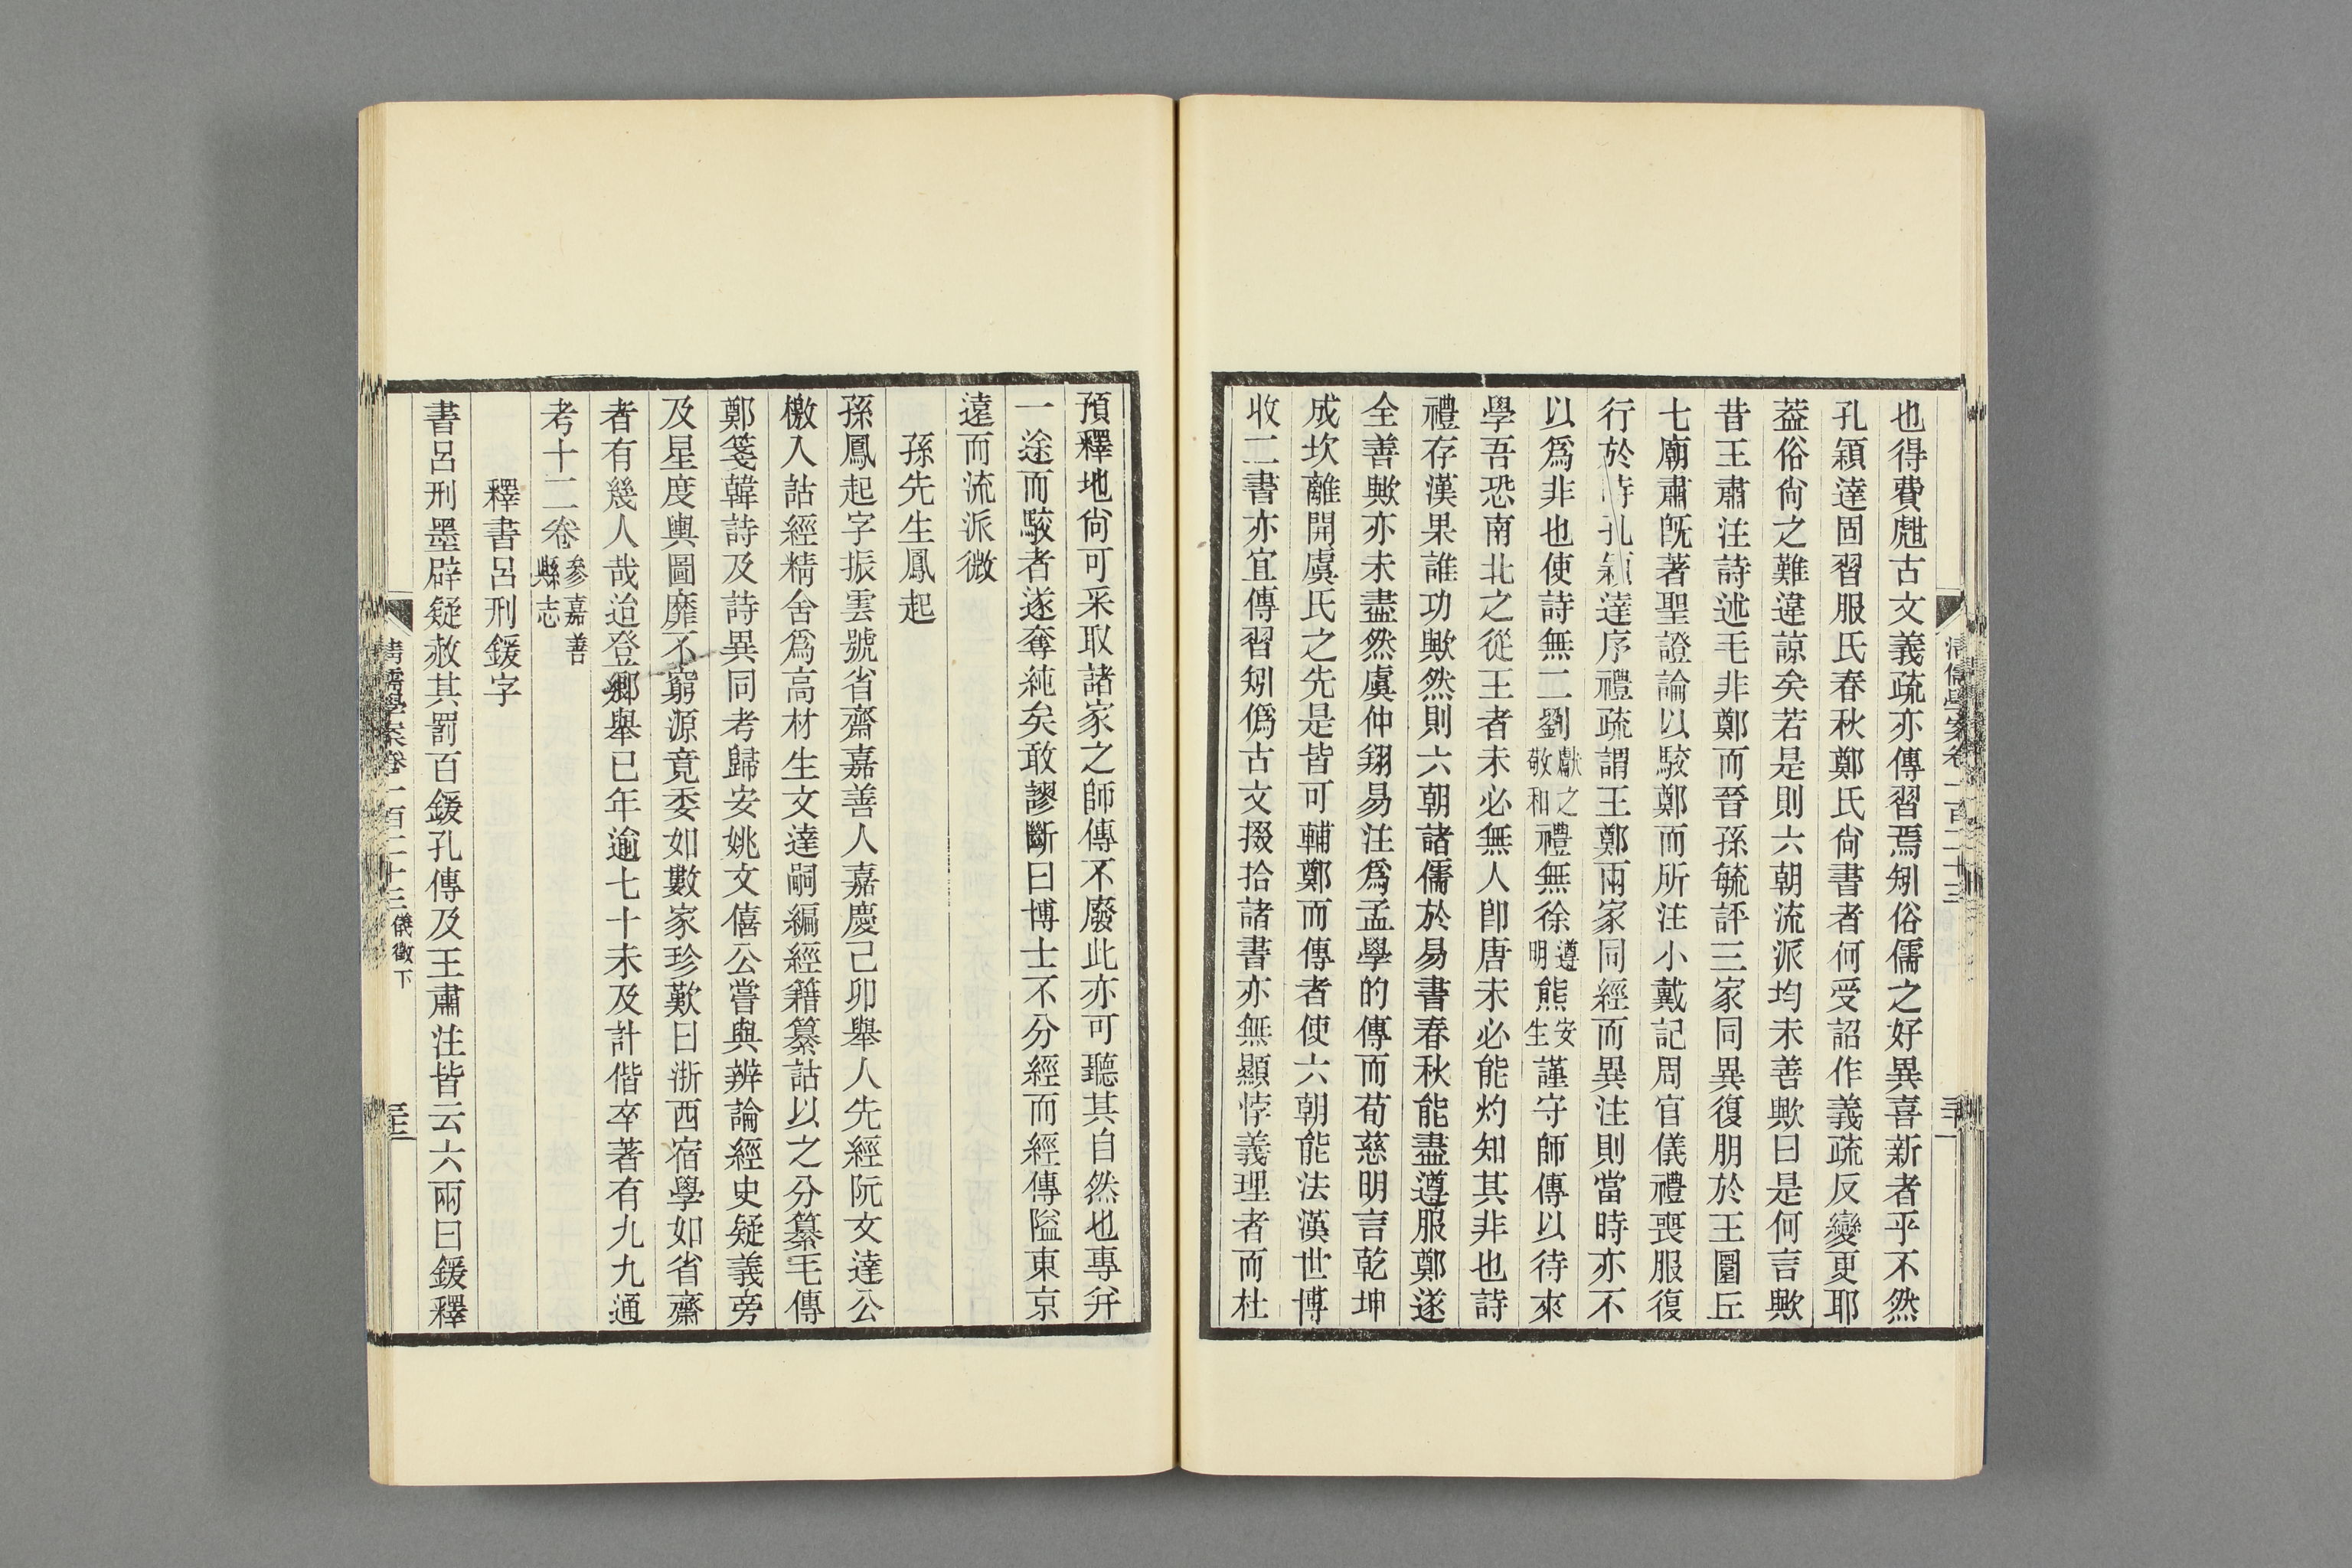 清儒學案卷一百二十三
也得費甝古文義疏亦傳習焉矧俗儒之好異喜新者乎不然
孔穎達固習服氏春秋鄭氏尙書者何受詔作義疏反變更耶
葢俗尙之難違諒矣若是則六朝流派均未善歟曰是何言歟
昔王肅注詩述毛非鄭而晉孫毓評三家同異復朋於王圜丘
七廟肅旣著聖證論以駮鄭而所注小戴記周官儀禮喪服復
行於時孔穎達序禮疏謂王鄭兩家同經而異注則當時亦不
以爲非也使詩無二劉獻之敬和禮無徐遵明熊安生謹守師傳以待來
學吾恐南北之從王者未必無人卽唐未必能灼知其非也詩
禮存漢果誰功歟然則六朝諸儒於易書春秋能盡遵服鄭遂
全善歟亦未盡然虞仲翔易注爲孟學的傳而荀慈明言乾坤
成坎離開虞氏之先是皆可輔鄭而傳者使六朝能法漢世博
收二書亦宜傳習矧僞古文掇拾諸書亦無顯悖義理者而杜
預釋地尙可采取諸家之師傳不廢此亦可聽其自然也專弁
一途而駮者遂奪純矣敢謬斷曰博士不分經而經傳隘東京
遠而流派微
孫先生鳳起
孫鳳起字振雲號省齋嘉善人嘉慶己卯舉人先經阮文達公
檄入詁經精舍爲高材生文達嗣編經籍籑詁以之分纂毛傳
鄭箋韓詩及詩異同考歸安姚文僖公嘗與辨論經史疑義旁
及星度輿圖靡不窮源竟委如數家珍歎曰浙西宿學如省齋
者有幾人哉迨登鄉舉已年逾七十未及計偕卒著有九九通
考十二卷參嘉善縣志
釋書呂刑鍰字
書呂刑墨辟疑赦其罰百鍰孔傳及王肅注皆云六兩曰鍰釋
清儒學案卷一百二十三 儀徵下